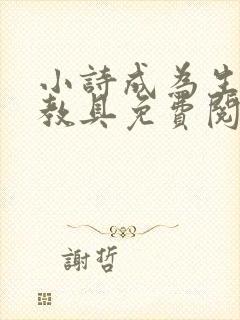 小詩成為生
教具免費閱
謝哲